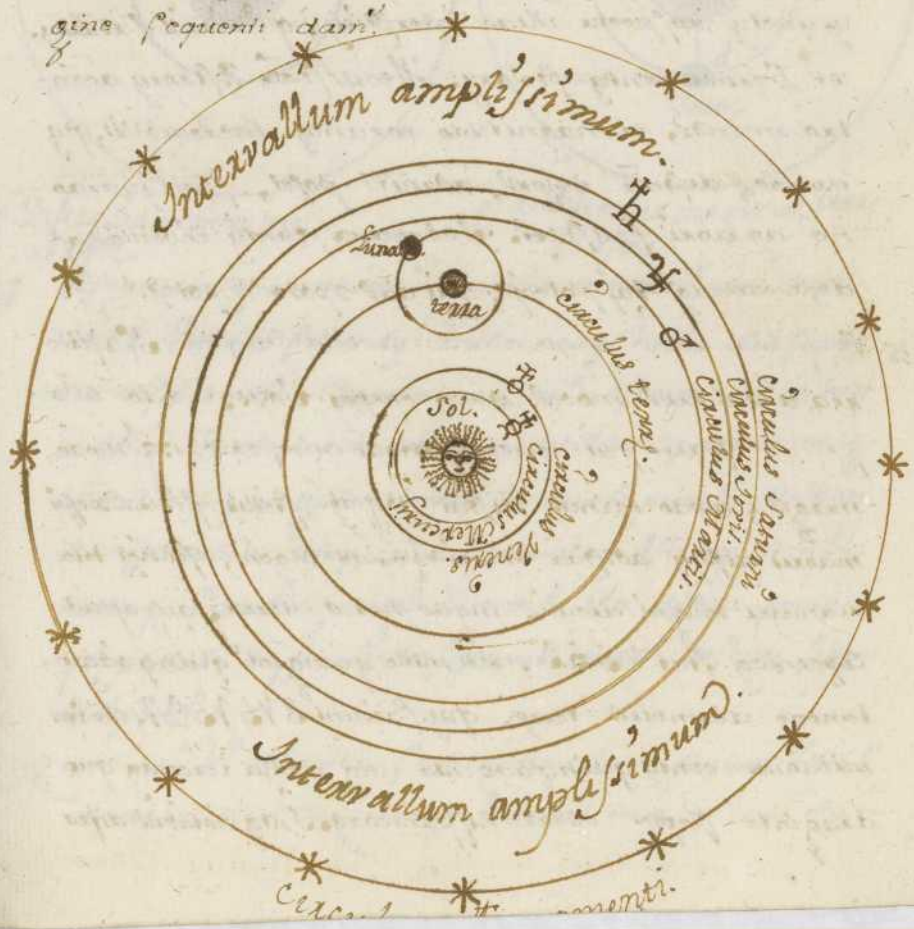 gine sequenti dam'.
Intervallum amplissimum.
♄
♃
♂
Luna.
terra
circulus terræ.
♀
☿
Sol.
circulus Mercurij.
circulus Veneris.
circulus Martis.
circulus Jovis.
circulus Saturni
Intervallum amplissimum.